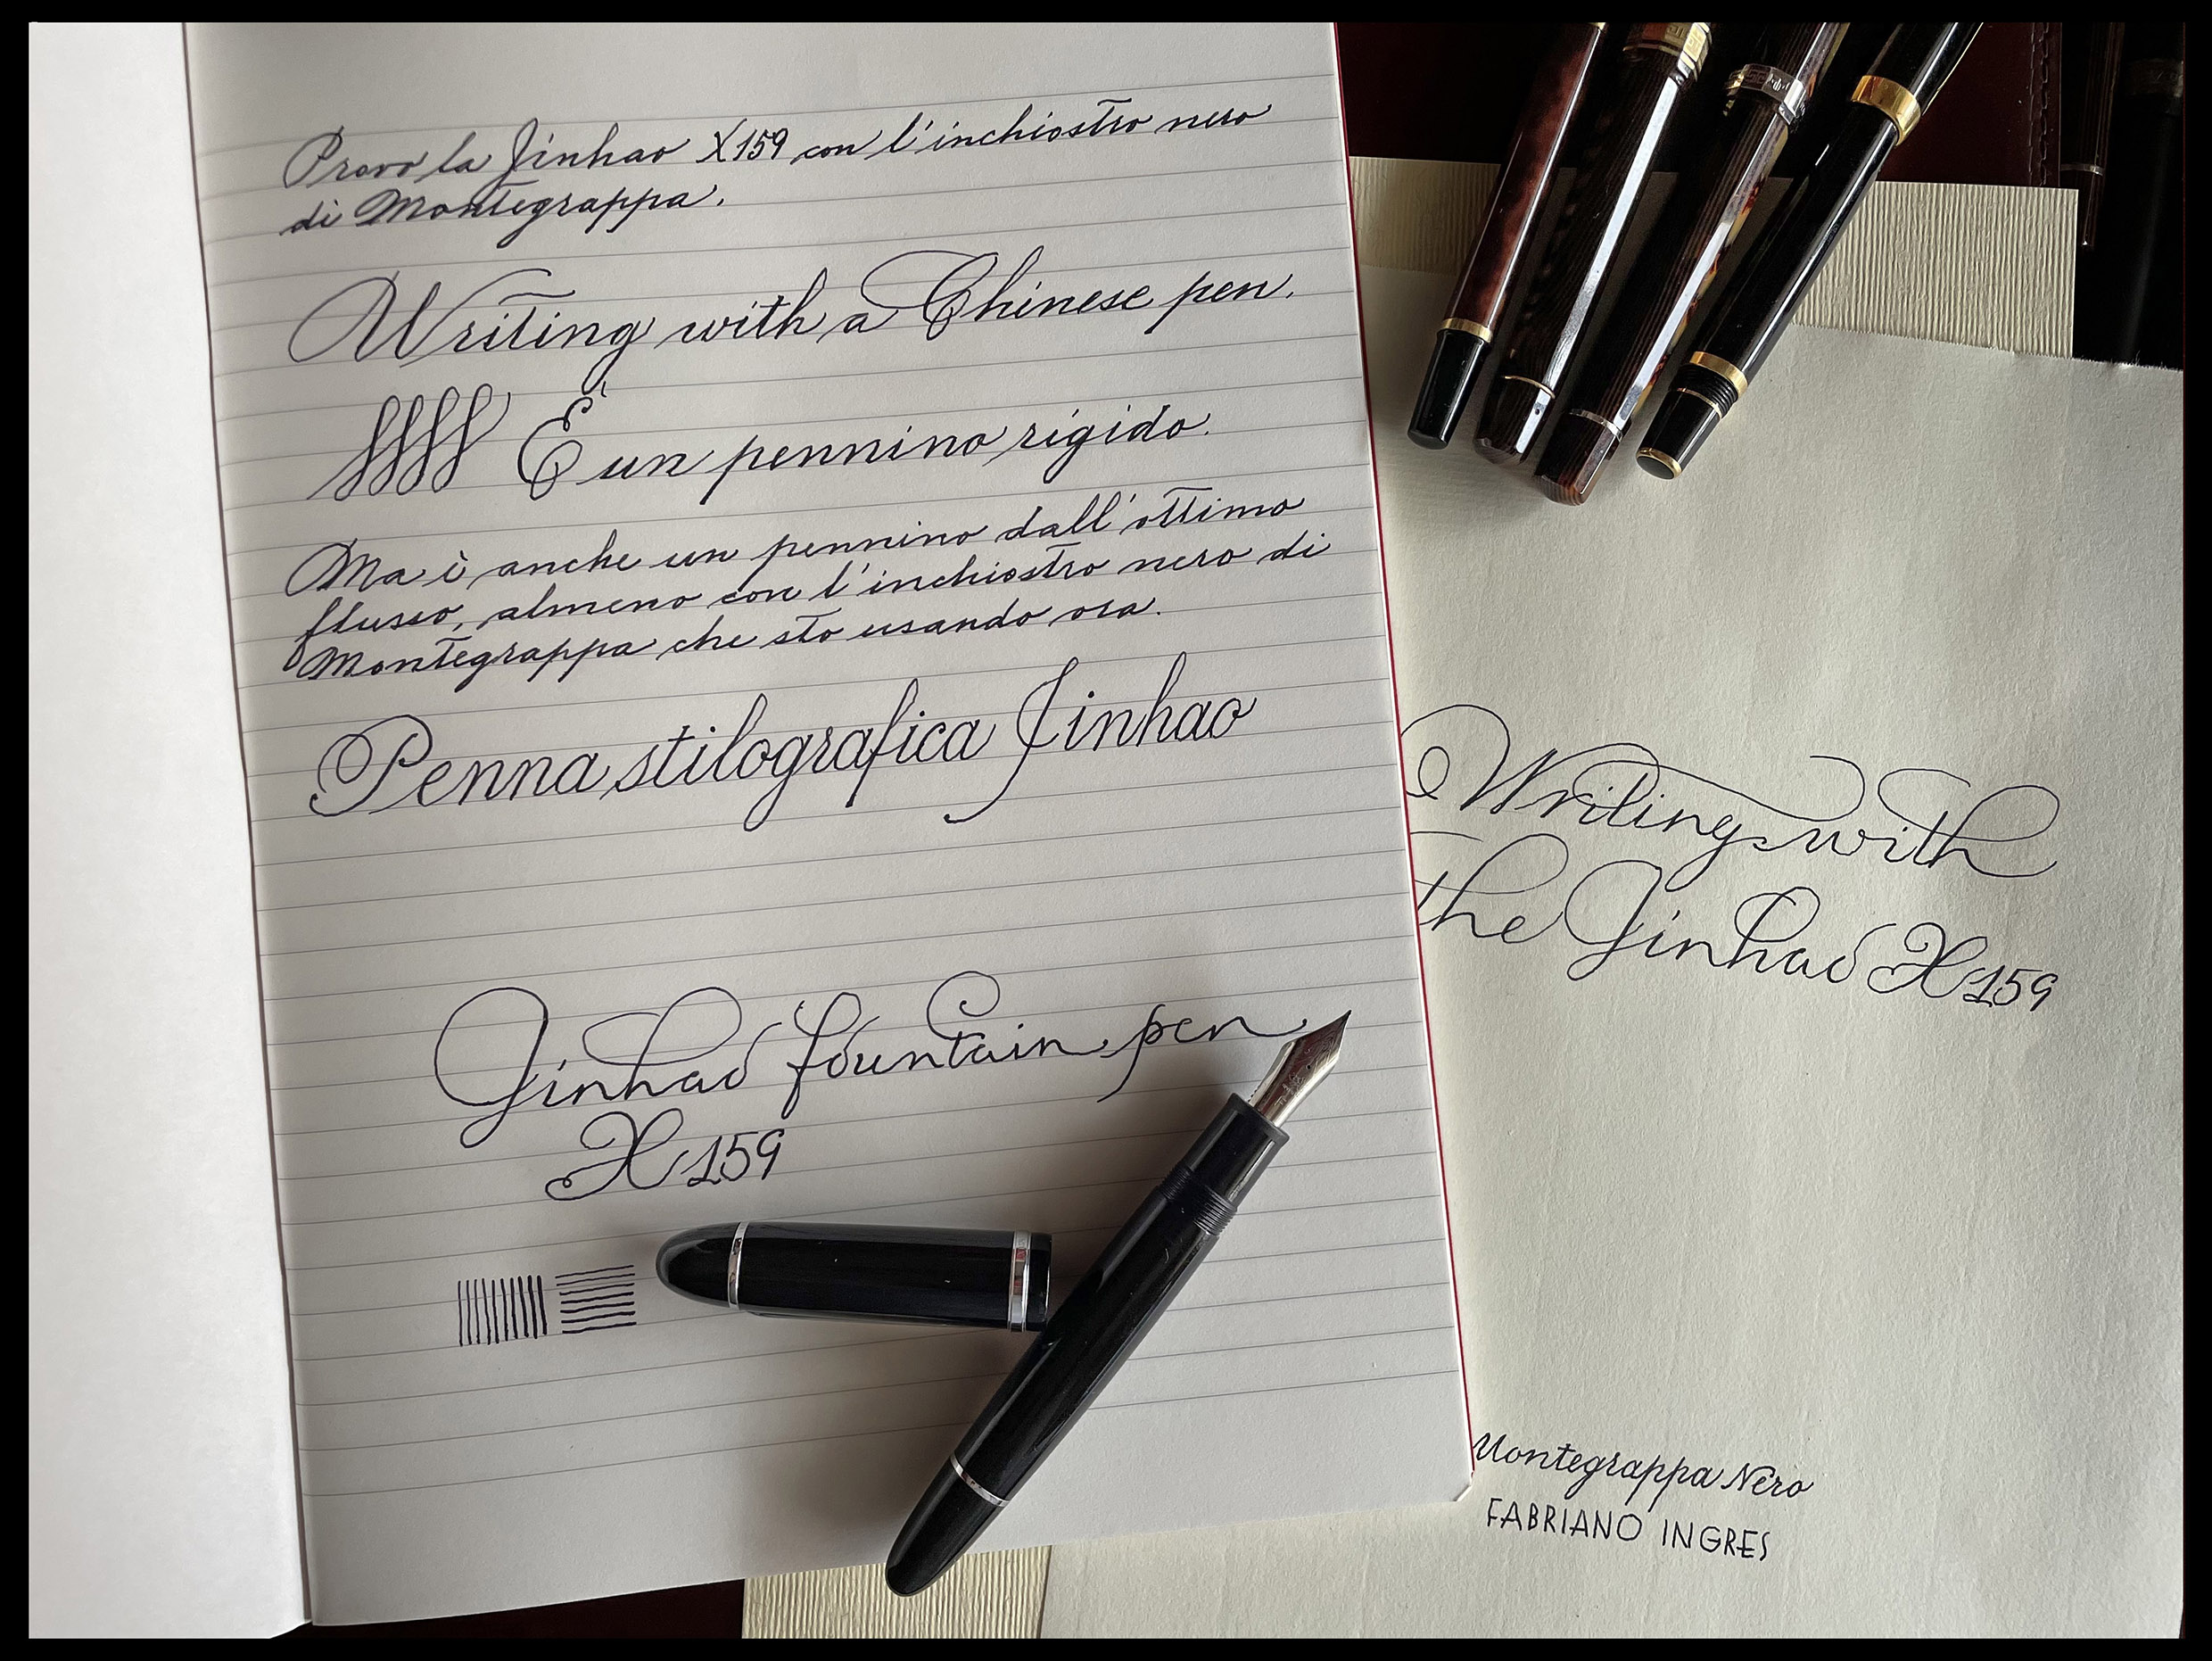 Provo la Jinhao X159 con l'inchiostro nero
di Montegrappa.
Writing with a Chinese pen.
È un pennino rigido.
Ma è anche un pennino dall'ottimo
flusso, almeno con l'inchiostro nero di
Montegrappa che sto usando ora.
Penna stilografica Jinhao
Jinhao fountain pen
X159
Writing with
the Jinhao X159
Montegrappa Nero
FABRIANO INGRES